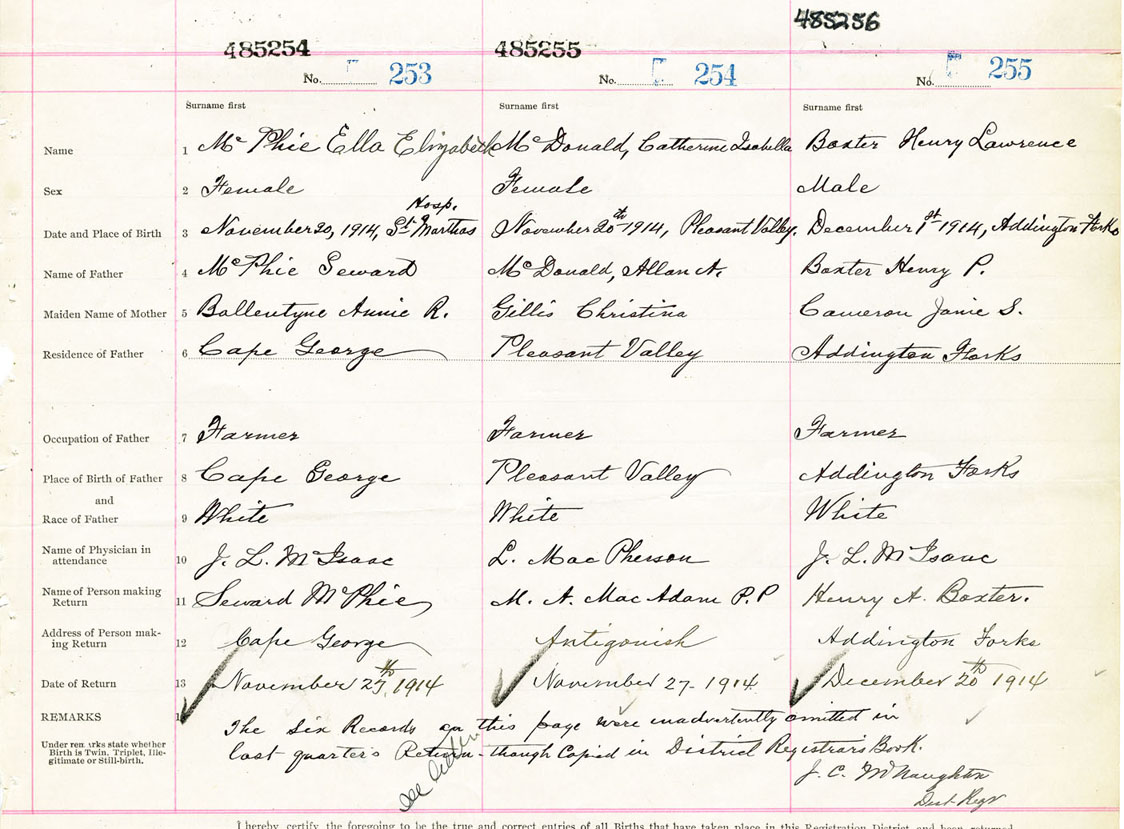 485254 485255 485256
No. 253 No. 254 No. 255
Surname first Surname first Surname first
Name 1 McPhie Ella Elizabeth McDonald, Catherine Isabella Baxter Henry Lawrence
Sex 2 Female Female Male
Hosp.
Date and Place of Birth 3 November 20, 1914, St Marthas November 20th 1914, Pleasant Valley. December 1st 1914, Addington Forks
Name of Father 4 McPhie Seward McDonald, Allan A. Baxter Henry P.
Maiden Name of Mother 5 Ballentyne Annie R. Gillis Christina Cameron Janie S.
Residence of Father 6 Cape George Pleasant Valley Addington Forks
Occupation of Father 7 Farmer Farmer Farmer
Place of Birth of Father 8 Cape George Pleasant Valley Addington Forks
and
Race of Father 9 White White White
Name of Physician in
attendance 10 J. L. McIsaac L. MacPherson J. L. McIsaac
Name of Person making
Return 11 Seward McPhie M. A. MacAdam P.P Henry A. Baxter.
Address of Person mak-
ing Return 12 Cape George Antigonish Addington Forks
Date of Return 13 November 27th, 1914 November 27 - 1914 December 20th 1914
REMARKS The six Records on this page were inadvertently omitted in
last quarter's Return - though Copied in District Registrars Book.
Under remarks state whether
Birth is Twin, Triplet, Ille-
gitimate or Still-birth.
J. C. McNaughton
Dist. Regr
See letter
I hereby certify the foregoing to be the true and correct entries of all Births that have taken place in this Registration District, and been returned